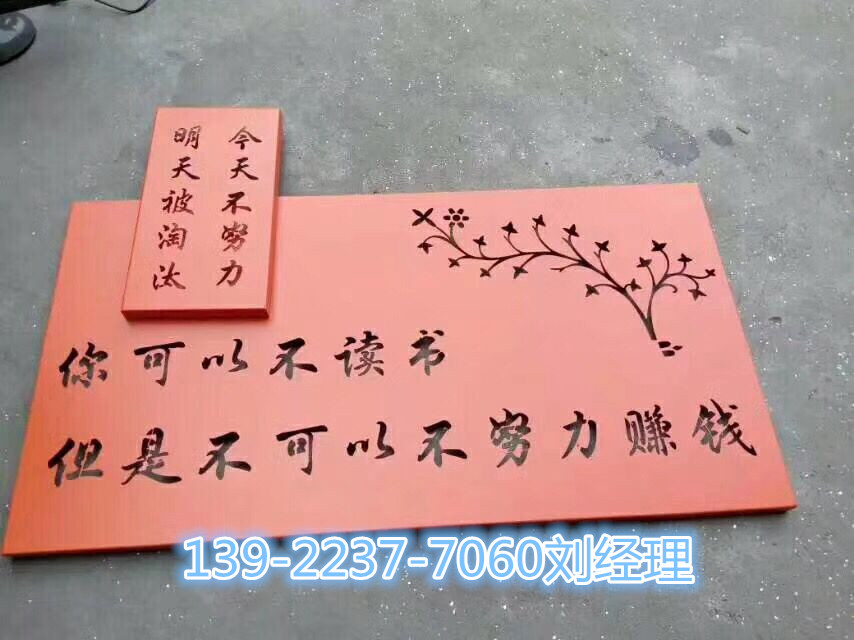 今天不努力
明天被淘汰
你可以不读书
但是不可以不努力赚钱
139-2237-7060刘经理